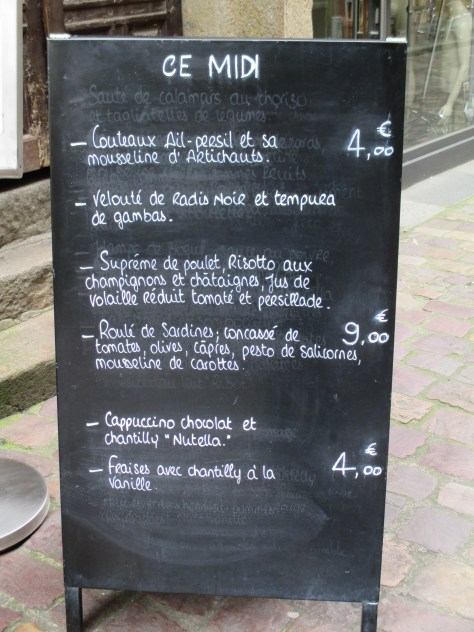 CE MIDI
Sauté de calamars au chorizo
et tagliatelles de légumes
— Couteaux Ail-persil et sa
mousseline d'Artichauts.
4,00 €
— Velouté de Radis Noir et tempura
de gambas.
— Supréme de poulet, Risotto aux
champignons et châtaignes, Jus de
volaille réduit tomaté et persillade.
— Roulé de Sardines; concassé de
tomates, olives, câpres, pesto de salicornes,
mousseline de carottes.
9,00 €
— Cappuccino chocolat et
chantilly "Nutella."
— Fraises avec chantilly à la
vanille.
4,00 €